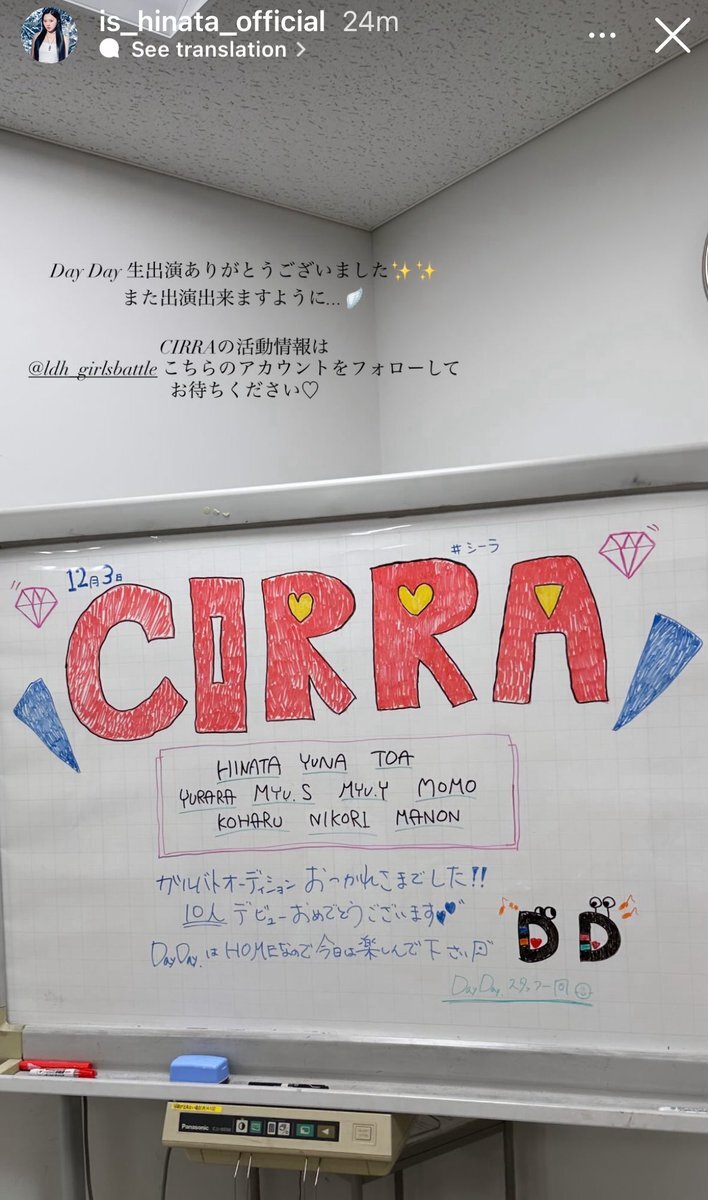 is_hinata_official 24m
See translation
Day Day 生出演ありがとうございました✨✨
また出演出来ますように... 🪽
CIRRAの活動情報は
@ldh_girlsbattle こちらのアカウントをフォローして
お待ちください♡
#シーラ
12月3日
CIRRA
HINATA YUNA TOA
YURARA MYU.S MYU.Y MOMO
KOHARU NIKORI MANON
ガルバトオーディション おつかれさまでした!!
10人 デビューおめでとうございます
DayDay.はHOMEなので今日は楽しんで下さい
DD
DayDay.スタッフ一同
Panasonic